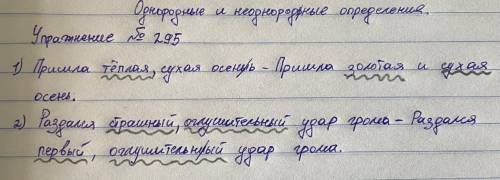 Однородные и неоднородные определения.
Упражнение № 295
1) Пришла тёплая, сухая осень - Пришла золотая и сухая
осень.
2) Раздался страшный, оглушительный удар грома - Раздался
первый, оглушительный удар грома.